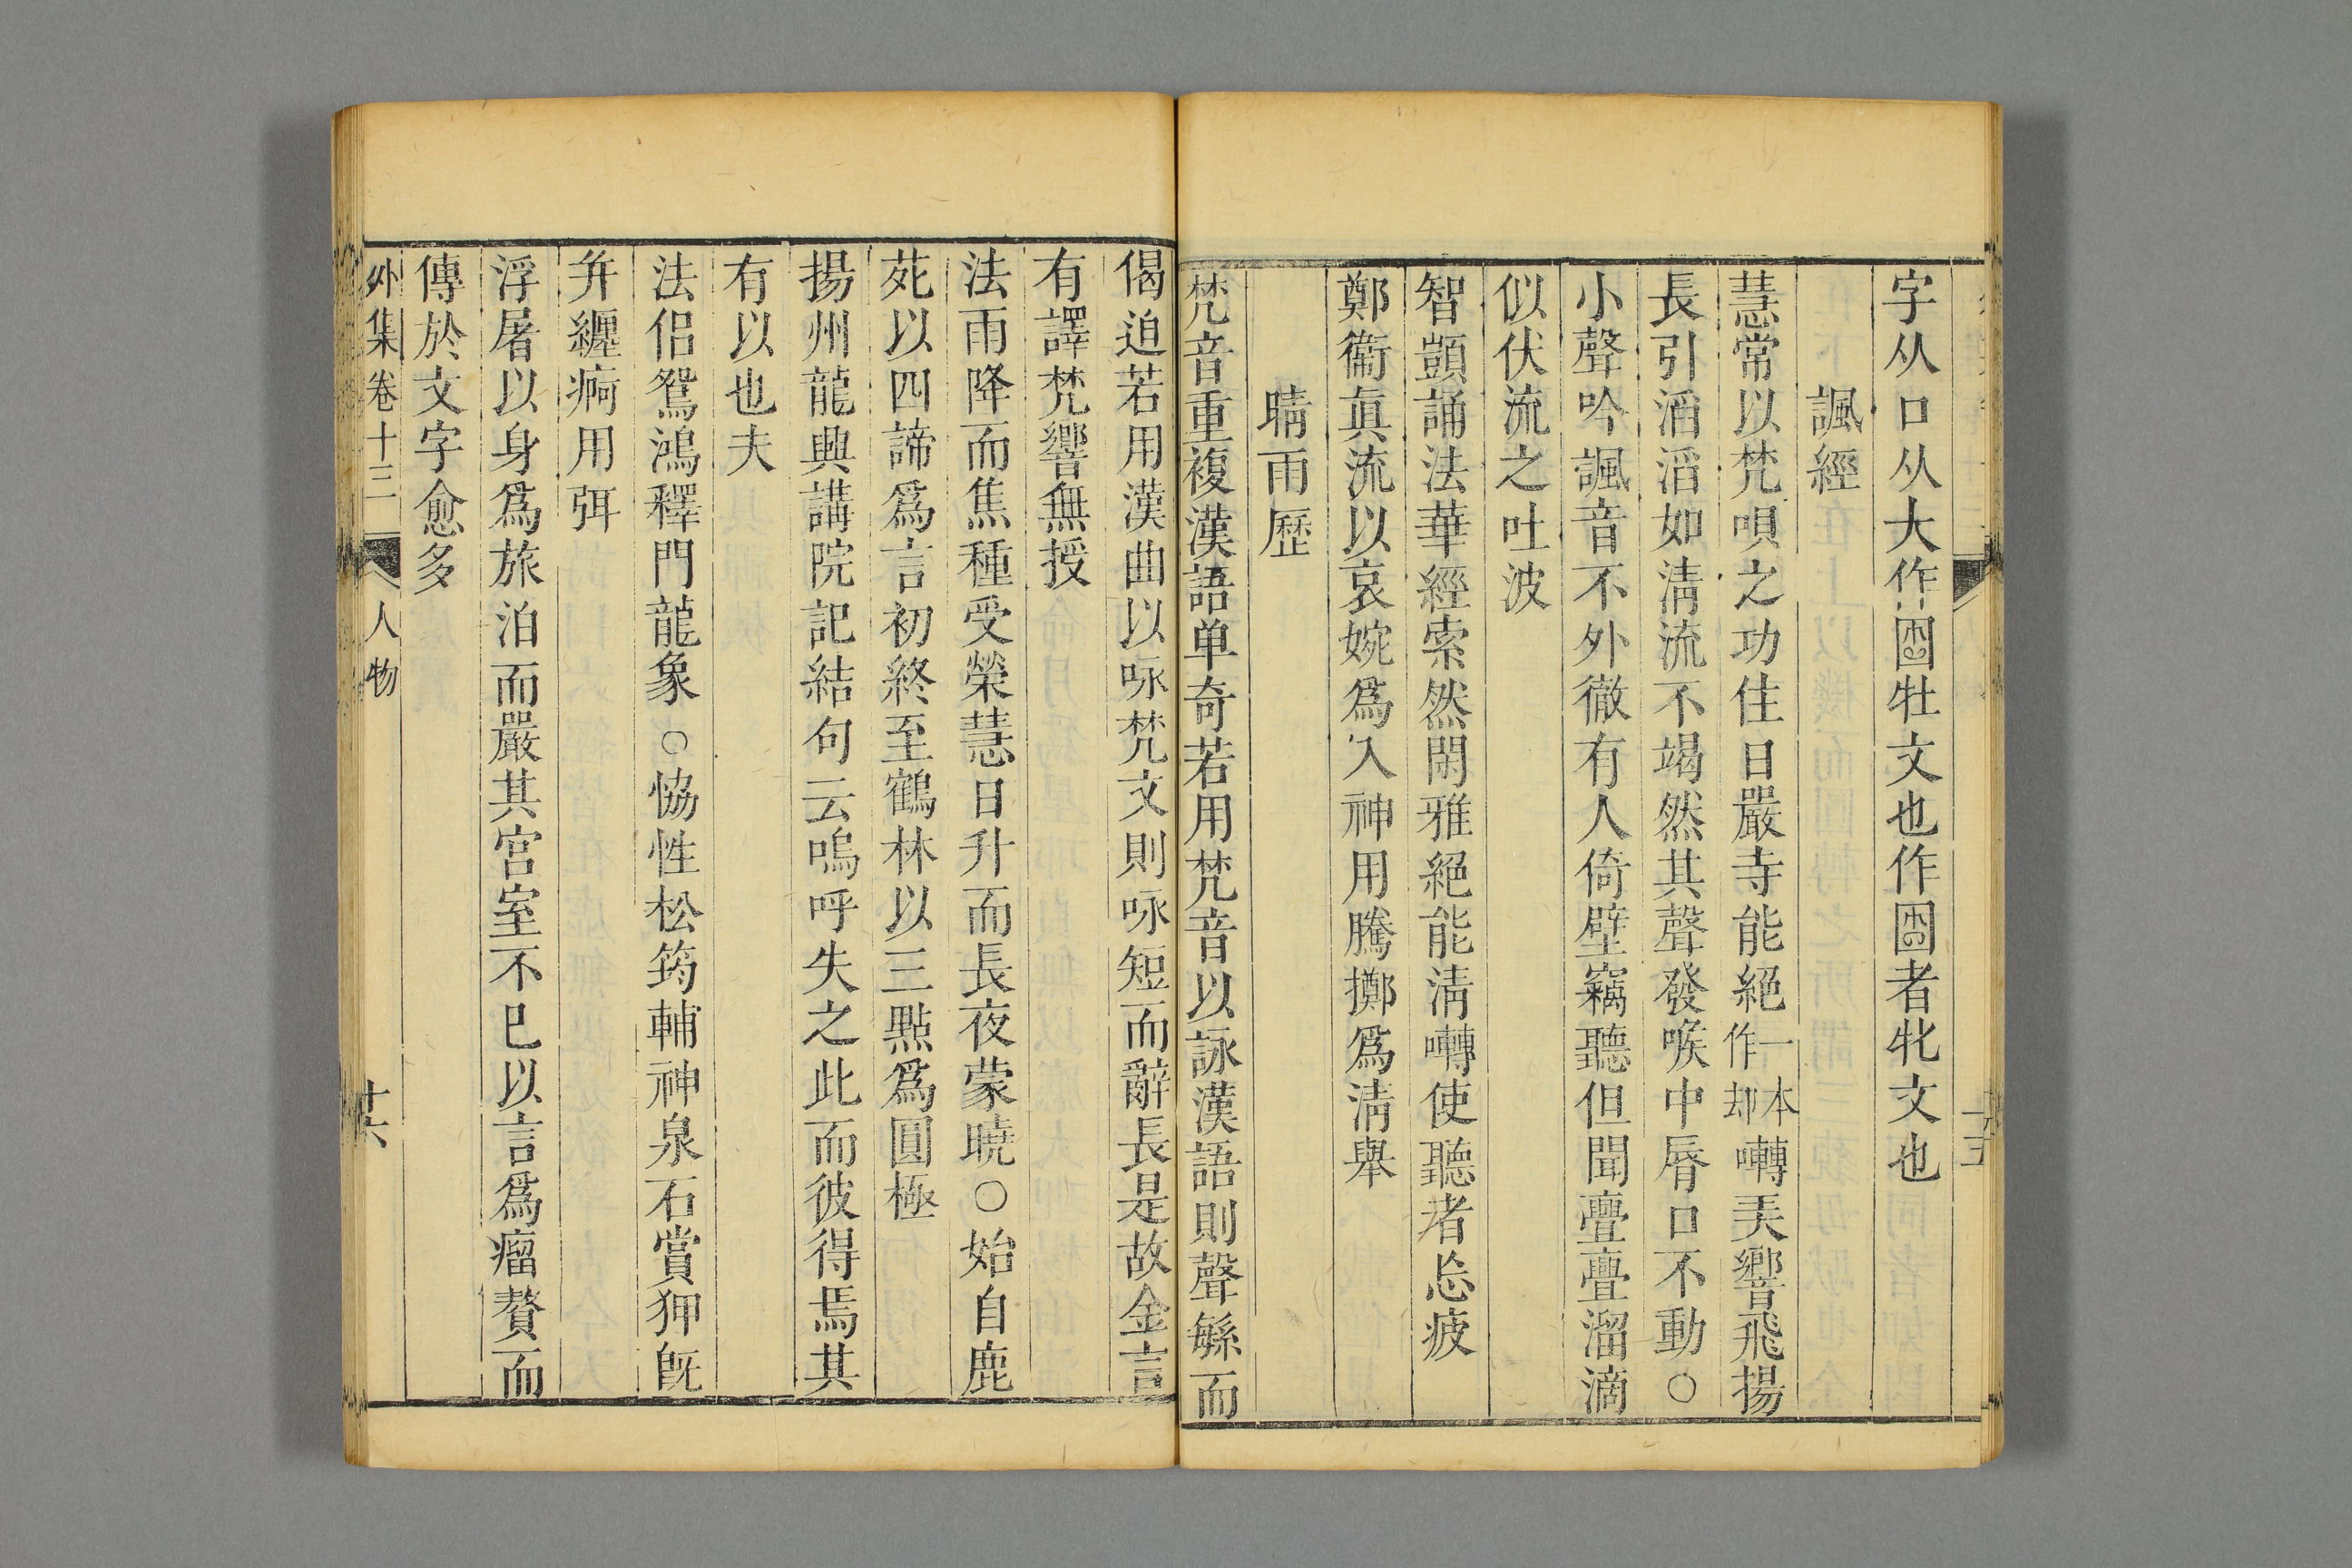 字从口从大作囦牡文也作囦者牝文也
諷經
慧常以梵唄之功住日嚴寺能絕一本作却囀美響飛揚
長引滔滔如清流不竭然其聲發喉中脣口不動○
小聲吟諷音不外徹有人倚壁竊聽但聞亹亹溜滴
似伏流之吐波
智顗誦法華經索然閑雅絕能清囀使聽者忘疲
鄭衞眞流以哀婉爲入神用騰擲爲清舉
晴雨歷
梵音重複漢語单奇若用梵音以詠漢語則聲繇而
偈迫若用漢曲以咏梵文則咏短而辭長是故金言
有譯梵響無授
法雨降而焦種受榮慧日升而長夜蒙曉○始自鹿
苑以四諦爲言初終至鶴林以三點爲圓極
揚州龍興講院記結句云嗚呼失之此而彼得焉其
有以也夫
法侶鴛鴻釋門龍象○恊性松筠輔神泉石賞狎旣
幷纏痾用弭
浮屠以身爲旅泊而嚴其宮室不巳以言爲瘤贅而
傳於文字愈多
外集卷十三 人物 廿六